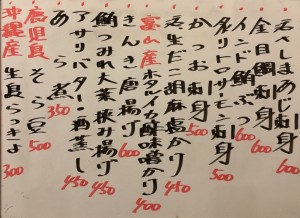 活〆しまあじ刺身 600
金目鯛刺身 600
インド鮪ぶつ 600
名刺身 500
かつお刺身 500
活生だこ胡麻塩かり 450
富山産ホタルイカ酢味噌かけ 400
きんき唐揚げ 600
鮪つみれ大葉挟み揚げ 450
アサリバター・酒蒸し 450
あら煮 350
鹿児島そら豆 500
沖縄産生島らっきょ 300